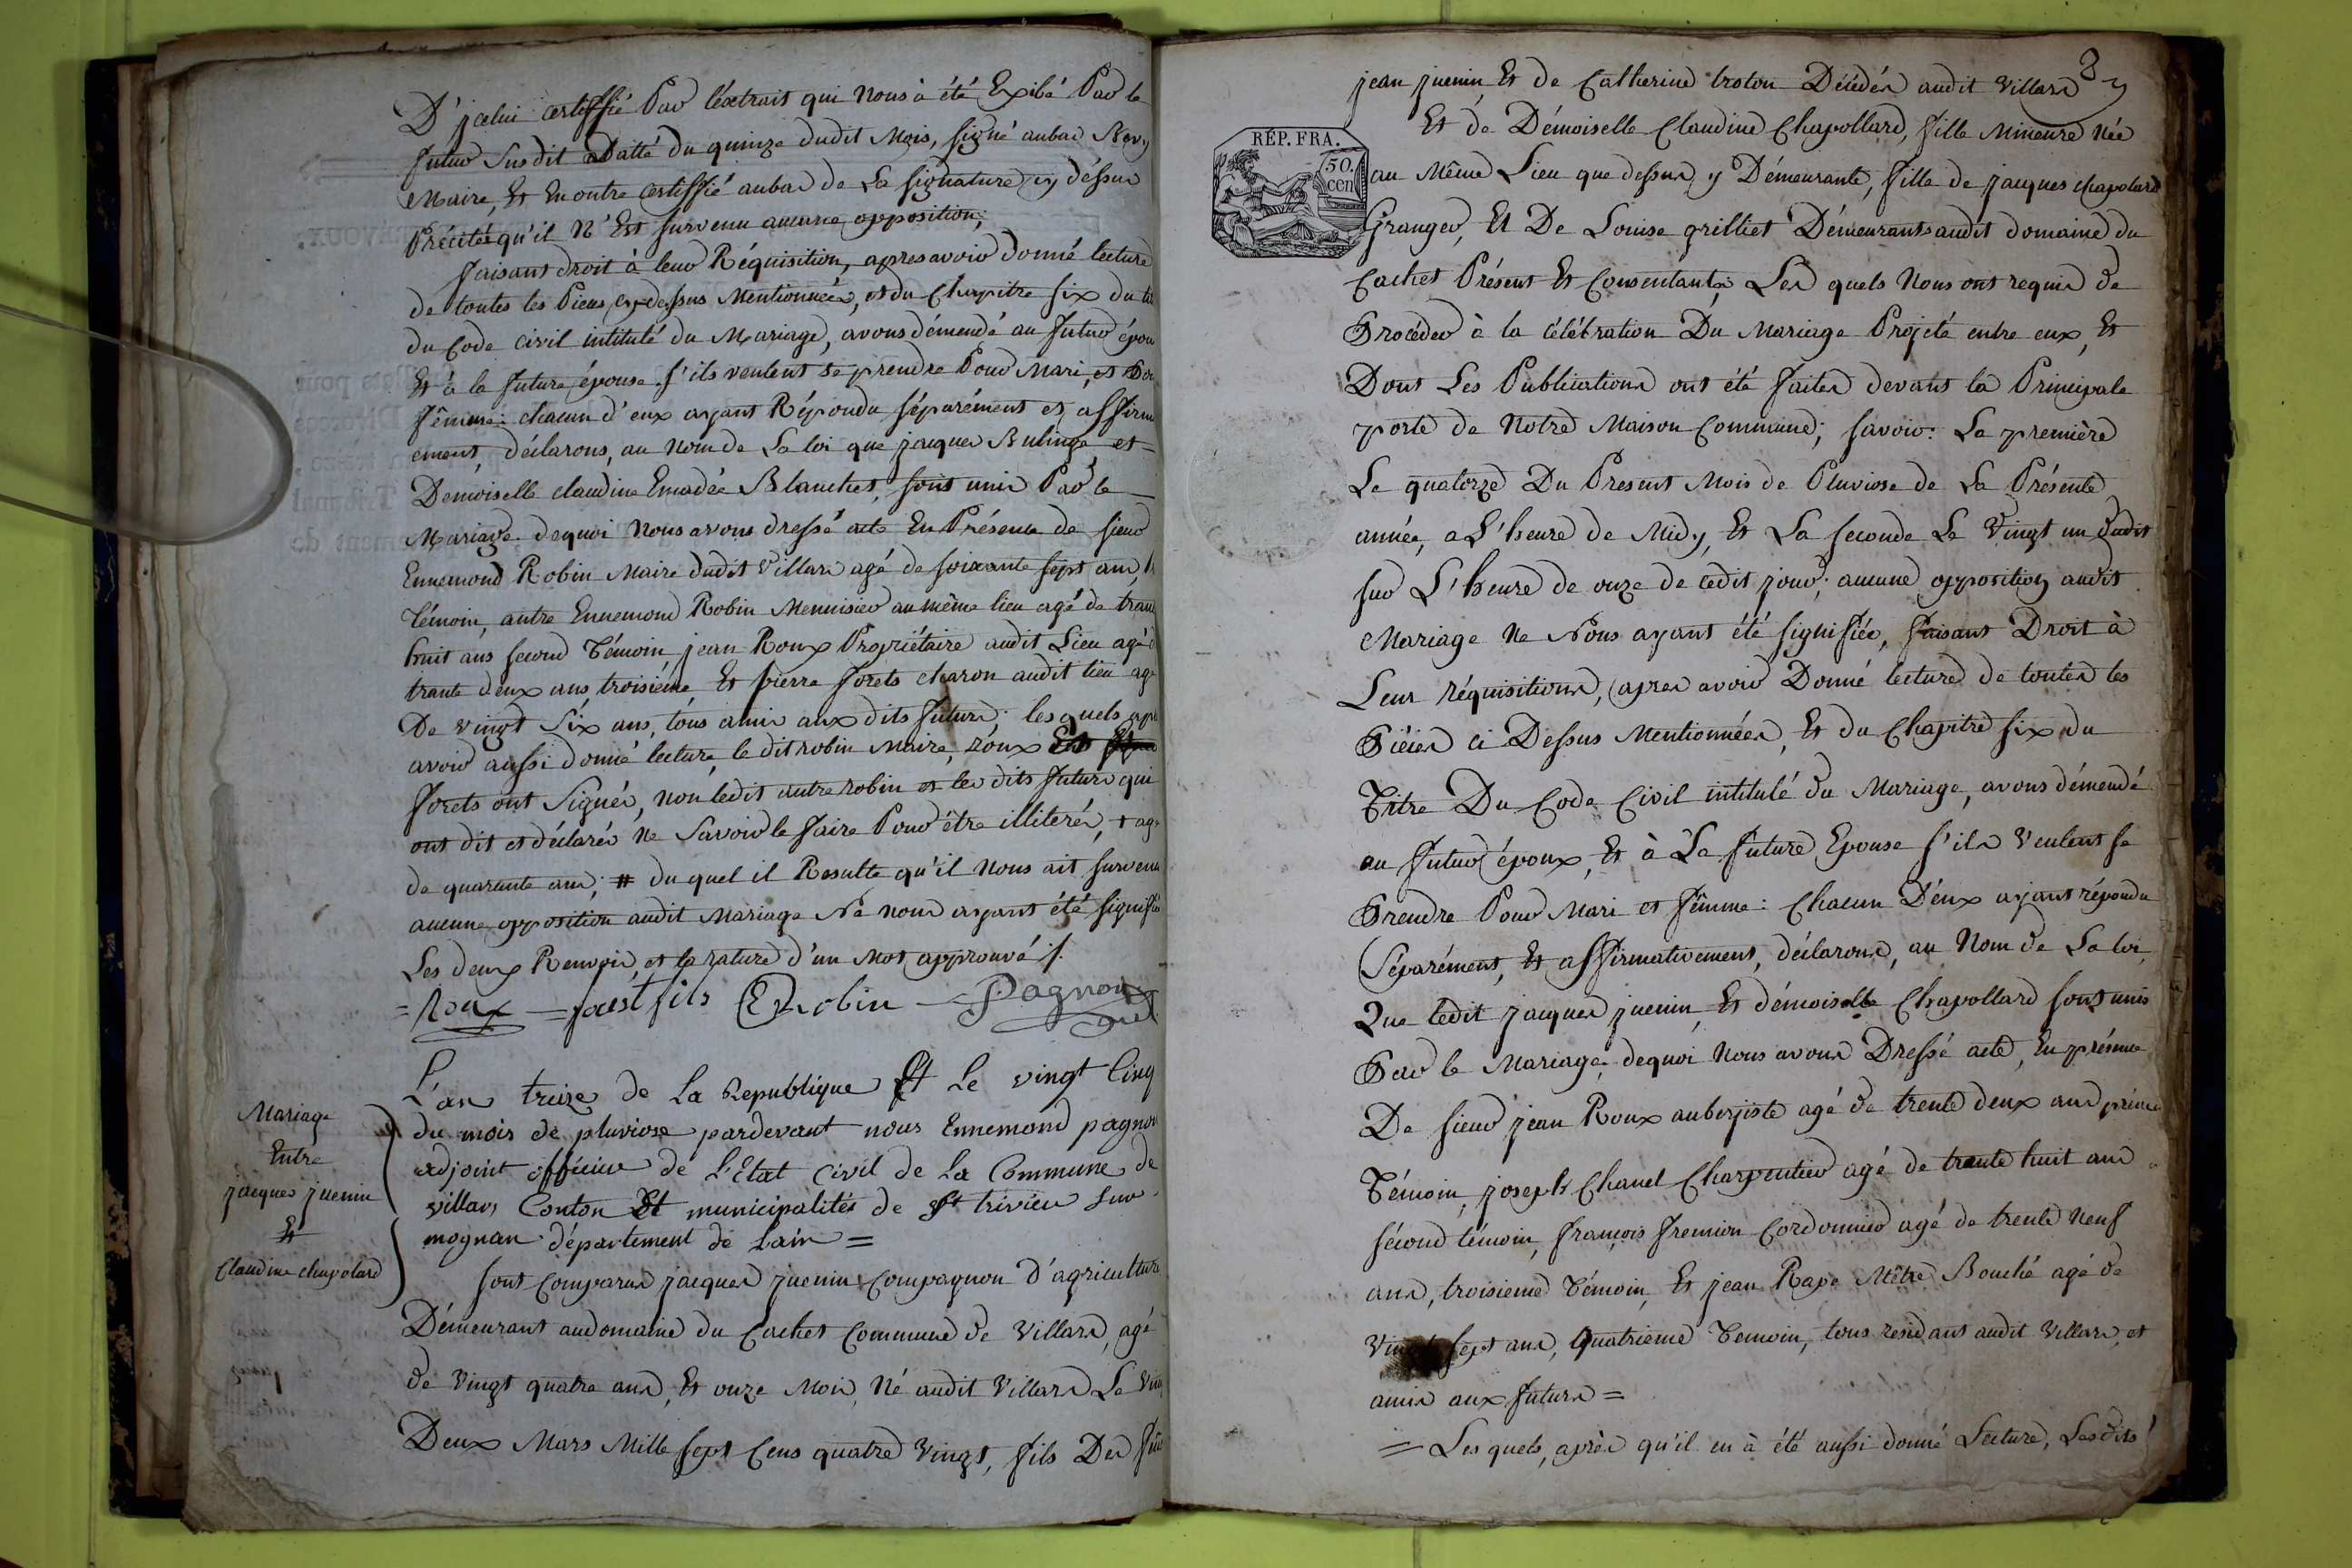 D'jcelui certiffié Par l'éxtrait qui Nous à été Exibé Par le
futur Susdit Datté du quinze dudit Mois, signé aubas
Maire, Et En outre certiffié aubas de La signature cy déssus
Précitée qu'il N'Est survenu aucune opposition;
faisant droit à leur Réquisition, apres avoir donné lecture
de toutes les Pieces cy-dessus Mentionnées, et du Chapitre six du
du Code civil intitulé du Mariage, avons démendé au futur
Et à la future épouse s'ils veulent se prendre Pour Mari, et
fêmme: chacun d'eux ayant Répondu séparément et affirm
ement, déclarons, au Nom de La loi que jacques Bulinge et =
Demoiselle claudine Emadée Blanchet, sont unis Par le
Mariage. dequoi Nous avons dressé acte En Présence de sieur
Ennemond Robin Maire dudit Villars agé de soixante sept ans,
témoin, autre Ennemond Robin Mennisier au même lieu agé de
huit ans second Témoin jean Roux Propriétaire audit Lieu agé
trante deux ans, troisiéme Et pierre forets charon audit lieu
De vingt Six ans, tous amis aux dits futurs; lesquels
avoir aussi donné lecture, le dit robin Maire, roux
forets ont Signés, non ledit autre robin et les dits futurs qui
ont dit et déclarés Ne Savoir le faire Pour être illiterés, +
de quarante ans; # du quel il Resulte qu'il Nous ait survenu
aucune opposition audit Mariage Ne nous ayant été signifiée
Les deux Renvois, et la rature d'un Mot approuvé ./.
= Roux = forest fils E Robin Pagnon
Mariage
Entre
jacques juenin
Et
Claudine chapolard
L'an treize de La Republique Et Le vingt Cinq
du mois de pluviose pardevant nous Ennemond pagnon
adjoint officier de L'Etat Civil de La Commune de
villars Conton Et municipalités de St trivier sur
mognan département de Lain =
sont Comparus jacques juenin Compagnon D'agriculture
Démeurant audomaine du Cachet Commune de Villars, agé
de Vingt quatre ans, Et onze Mois, Né audit Villars Le
Deux Mars Mille sept Cens quatre Vingt, fils De
3
jean juenin Et de Catherine troton Décédés audit Villars
Et de Démoiselle Claudine Chapollard, fille Mineure Née
RÉP. FRA.
50.
cen
au Même Lieu que dessus y Démeurante, fille de jacques chapolard
Granger, Et De Louise grilliet Démeurants audit domaine du
Cachet Présent Et Consentants; Les quels Nous ont requis de
Procéder à la célébration Du Mariage Projeté entre eux, Et
Dont Les Publications ont été faites devant la Principale
porte de Notre Maison Commune; savoir: La première
Le quatorze Du Present Mois de Pluviose de La Présente
année, a L'heure de Midy, Et La seconde Le Vingt un dudit
sur L'heure de onze de cedit jour; aucune opposition audit
Mariage Ne Nous ayant été signifiée, faisant Droit à
Leur réquisitions, apres avoir Donné lecture de toutes les
Piéces ci Dessus Mentionnées, Et du Chapitre six du
Titre Du Code Civil intitulé du Mariage, avons démendé
au futur époux, Et à La future Epouse s'ils Veulent se
Prendre Pour Mari et fêmme: Chacun D'eux ayant répondu
Séparément, Et affirmativement, déclarons, au Nom de La loi
Que ledit jacques juenin, Et démoiselle Chapollard sont unis
Par le Mariage; dequoi Nous avons Dressé acte, En présence
De sieur jean Roux auberjiste agé de trente deux ans
Témoin, joseph Chanel Charpentier agé de trante huit ans
sécond témoin, françois fremion Cordonnier agé de trente Neuf
ans, troisieme Témoin, Et jean Rape Mêtre Bouché agé de
Vingt sept ans, Quatrieme Temoin, tous residants audit Villars, et
amis aux futurs =
= Les quels, après qu'il en à été aussi donné Lecture, Lesdits